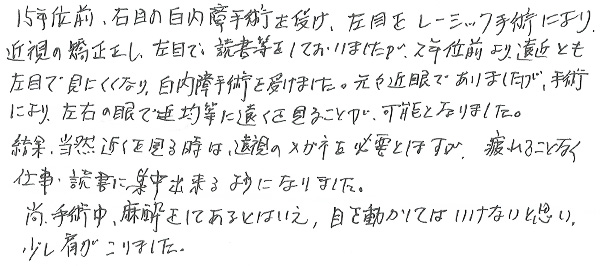 15年位前、右目の白内障手術を受け、左目をレーシック手術により、
近視の矯正をし、左目で読書等をしておりましたが、2年位前より遠近とも
左目で見にくくなり、白内障手術を受けました。元々近眼でありましたが、手術
により、左右の眼で近均等に遠くを見ることが、可能となりました。
結果、当然近くを見る時は、遠視のメガネを必要としますが、疲れることなく
仕事・読書に集中出来るようになりました。
尚、手術中、麻酔をしてあるとはいえ、目を動かしてはいけないと思い、
少し肩がこりました。